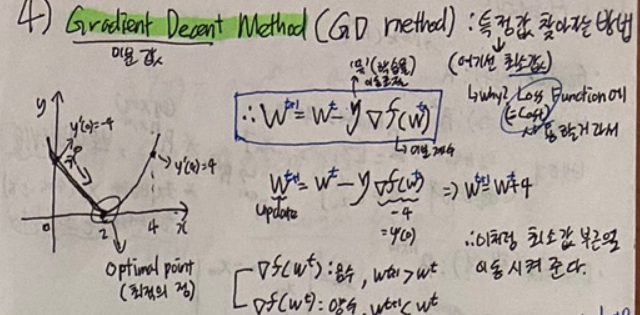 4) Gradient Decent Method (GD method) : 특정값 찾아가는 방법
미분 값
(여기선 최소값)
↳ why? Loss Function에
(=Cost)
사용할거라서
'음'(학습율)
∴ W^{t+1} = W^t - η ∇f(W^t)
↳ 미분계수
y
y'(0)=-4
y'(4)=4
0 2 4 x
Optimal point
(최적의 점)
W^{t+1} = W^t - η ∇f(W^t) ⇒ W^{t+1} = W^t + 4
update
-4
= y'(0)
∴ 이처럼 최소값 부근으로
이동시켜 준다.
∇f(W^t) : 음수, W^{t+1} > W^t
∇f(W^t) : 양수, W^{t+1} < W^t